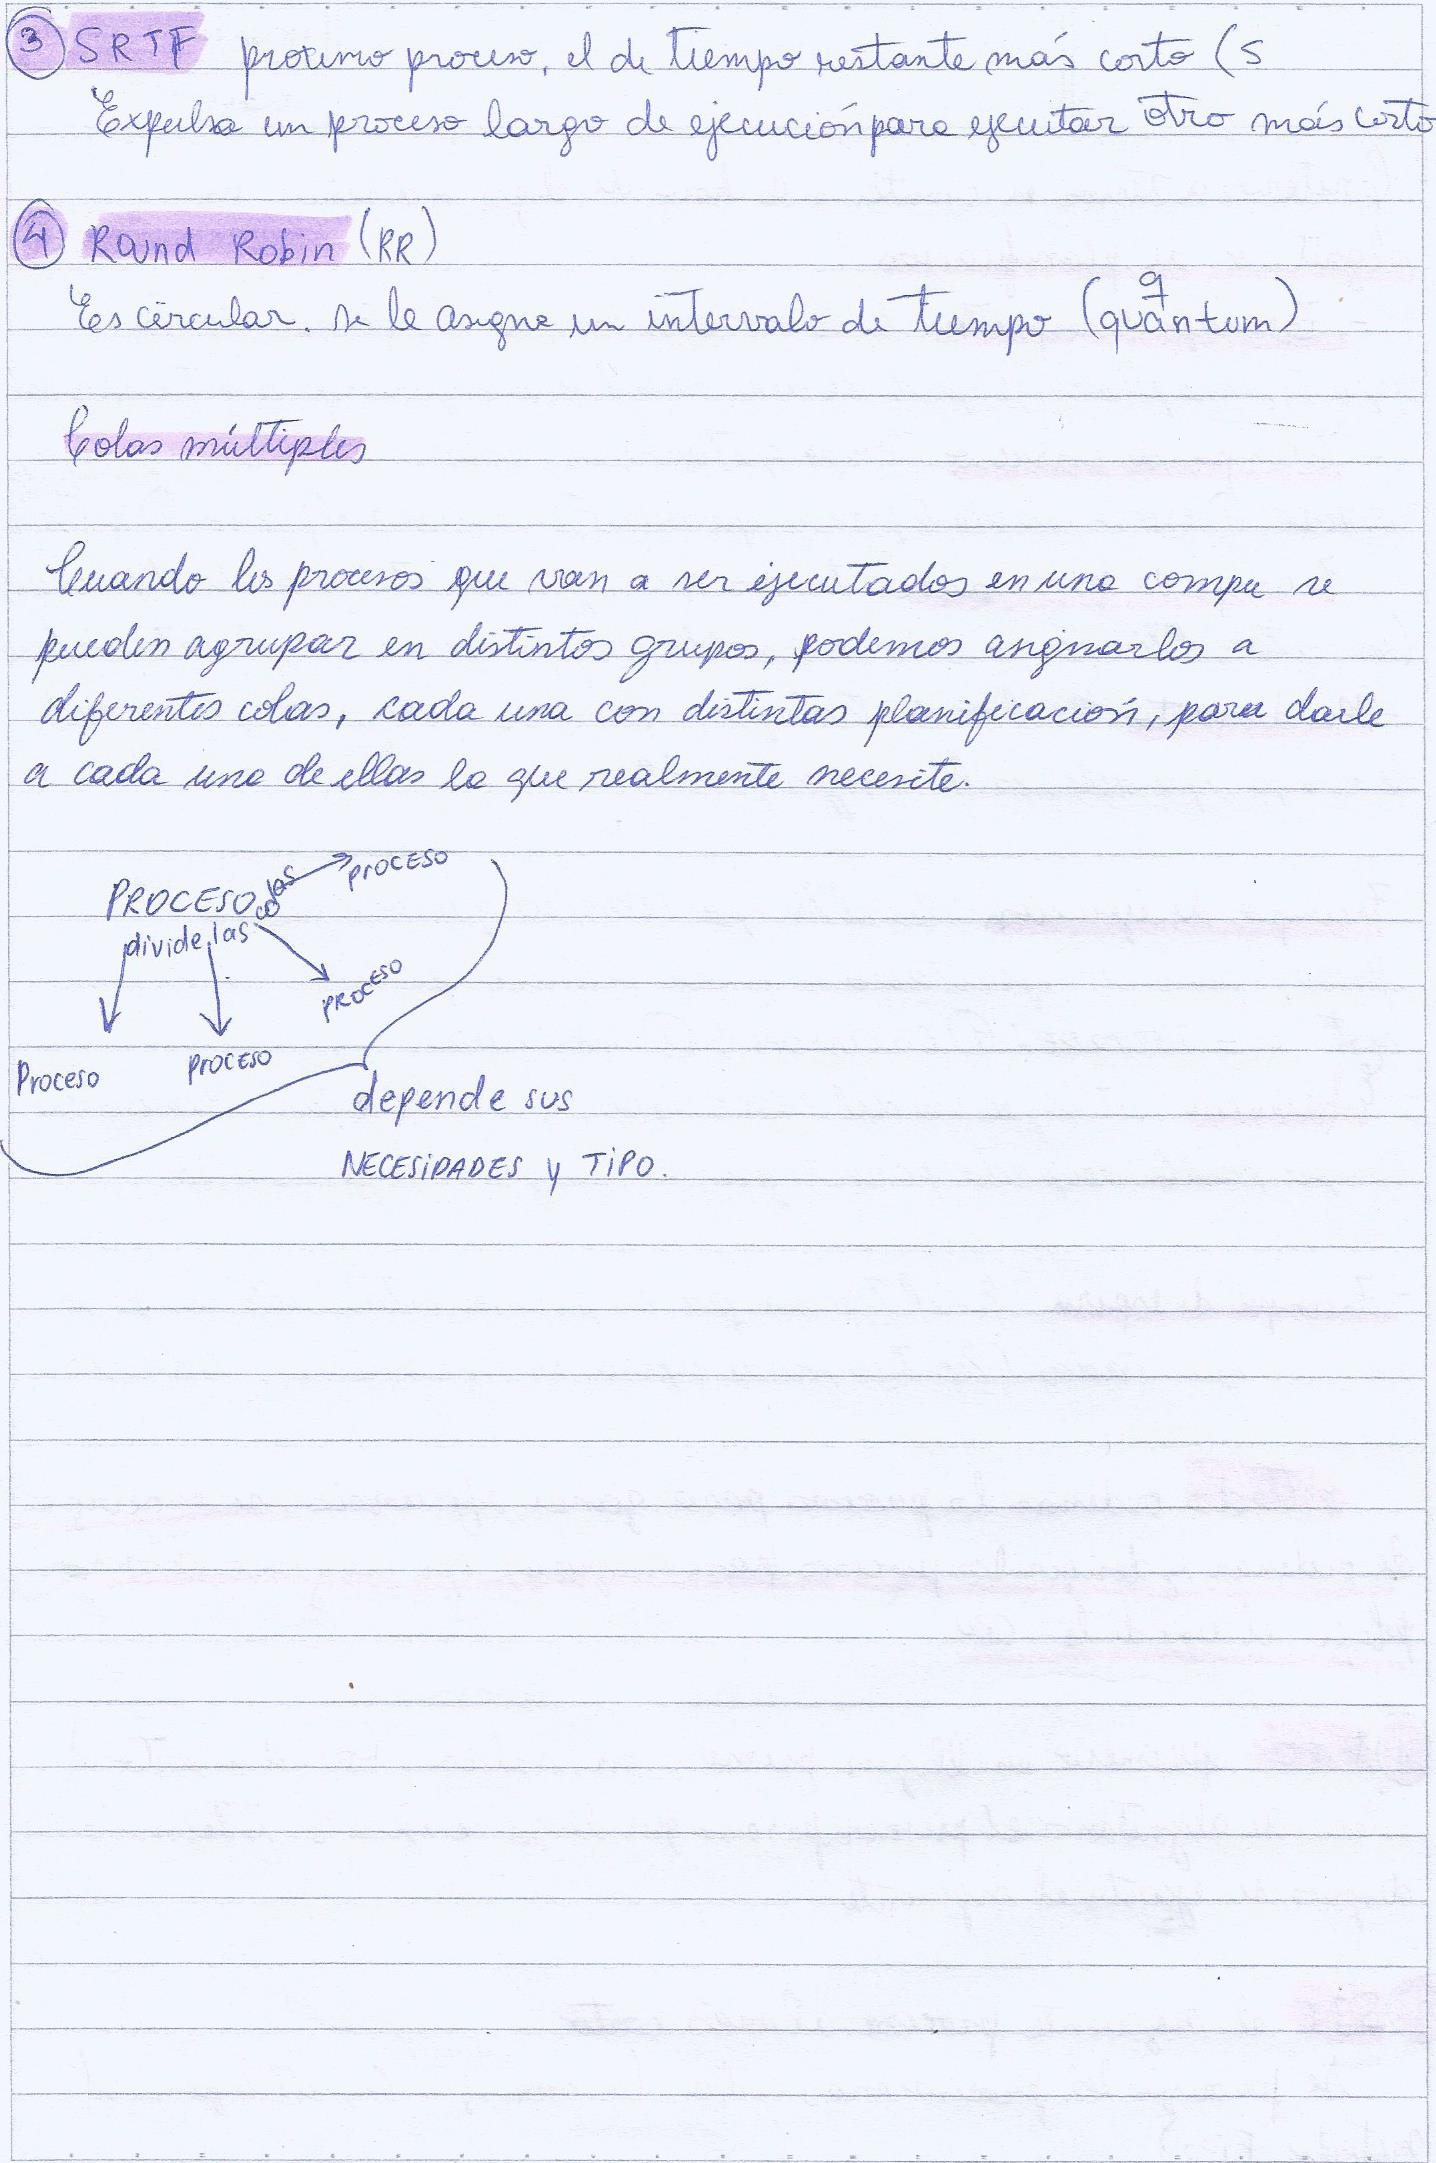 ③ SRTF proximo proceso, el de tiempo restante más corto (S
Expulsa un proceso largo de ejecución para ejecutar otro más corto
④ Round Robin (RR)
Es circular. se le asigna un intervalo de tiempo (quantum)
q
Colas múltiples
Cuando los procesos que van a ser ejecutados en una compu se
pueden agrupar en distintos grupos, podemos asignarlos a
diferentes colas, cada una con distintas planificación, para darle
a cada una de ellas lo que realmente necesite.
PROCESO
divide las colas
PROCESO
PROCESO
Proceso
PROCESO
depende sus
NECESIDADES y TIPO.